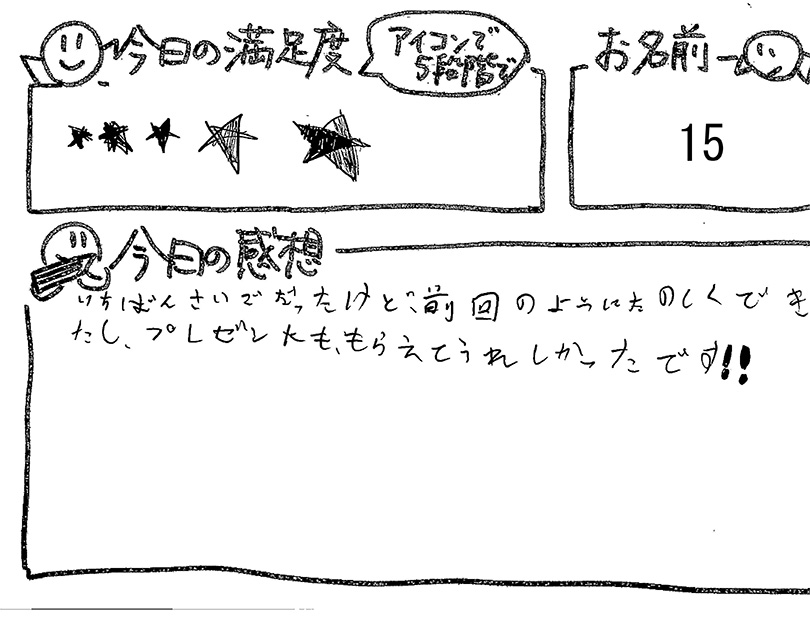 今日の満足度
アイコンで
5段階で
お名前
15
今日の感想
いちばんさいごだったけど、前回のようにたのしくでき
たし、プレゼントも、もらえてうれしかったです!!